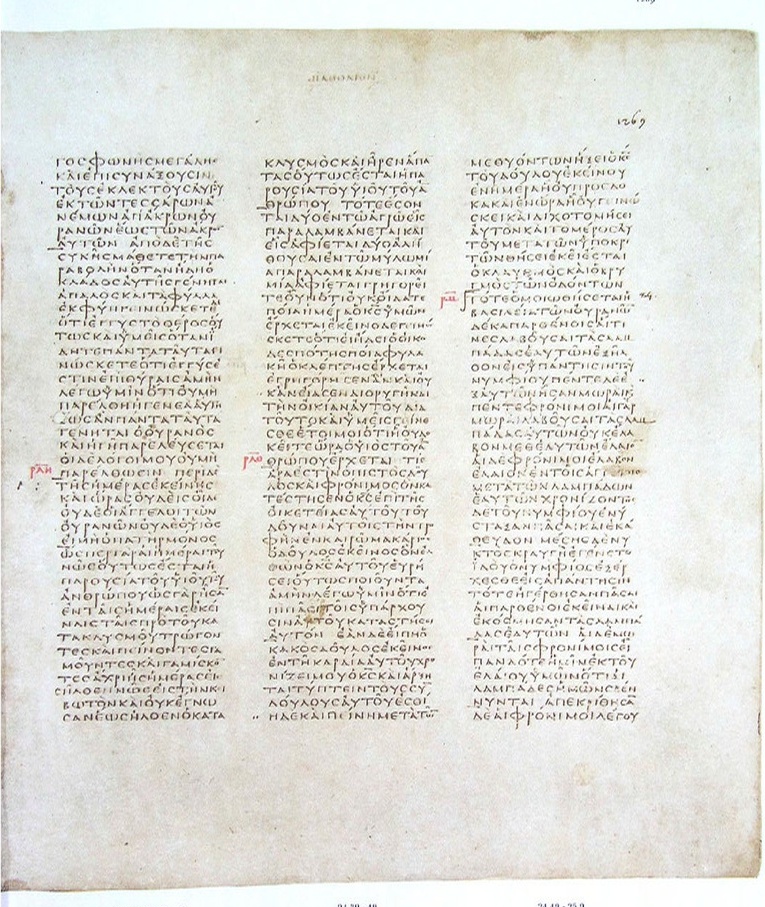 ΜΑΘΘΑΙΟΝ
1269
ΓΟϹΦΩΝΗϹΜΕΓΑΛΗϹ
ΚΑΙΕΠΙϹΥΝΑΞΟΥϹΙΝ
ΤΟΥϹΕΚΛΕΚΤΟΥϹΑΥΤΟΥ
ΕΚΤΩΝΤΕϹϹΑΡΩΝΑ
ΝΕΜΩΝΑΠΑΚΡΩΝΟΥ
ΡΑΝΩΝΕΩϹΤΩΝΑΚΡΩ
ΑΥΤΩΝ ΑΠΟΔΕΤΗϹ
ϹΥΚΗϹΜΑΘΕΤΕΤΗΝΠΑ
ΡΑΒΟΛΗΝΟΤΑΝΗΔΗΟ
ΚΛΑΔΟϹΑΥΤΗϹΓΕΝΗΤΑΙ
ΑΠΑΛΟϹΚΑΙΤΑΦΥΛΛΑ
ΕΚΦΥΗΓΕΙΝΩϹΚΕΤΕ
ΟΤΙΕΓΓΥϹΤΟΘΕΡΟϹΟΥ
ΤΩϹΚΑΙΥΜΕΙϹΟΤΑΝΙ
ΔΗΤΕΠΑΝΤΑΤΑΥΤΑΓΕΙ
ΝΩϹΚΕΤΕΟΤΙΕΓΓΥϹΕ
ϹΤΙΝΕΠΙΘΥΡΑΙϹΑΜΗΝ
ΛΕΓΩΥΜΙΝΟΤΙΟΥΜΗ
ΠΑΡΕΛΘΗΗΓΕΝΕΑΑΥΤΗ
ΕΩϹΑΝΠΑΝΤΑΤΑΥΤΑ
ΓΕΝΗΤΑΙΟΟΥΡΑΝΟϹ
ΚΑΙΗΓΗΠΑΡΕΛΕΥϹΕΤΑΙ
ΟΙΔΕΛΟΓΟΙΜΟΥΟΥΜΗ
ΡΛΗ ΠΑΡΕΛΘΩϹΙΝ ΠΕΡΙΔΕ
ΤΗϹΗΜΕΡΑϹΕΚΕΙΝΗϹ
ΚΑΙΩΡΑϹΟΥΔΕΙϹΟΙΔΕ
ΟΥΔΕΟΙΑΓΓΕΛΟΙΤΩΝ
ΟΥΡΑΝΩΝΟΥΔΕΟΥΙΟϹ
ΕΙΜΗΟΠΑΤΗΡΜΟΝΟϹ
ΩϹΠΕΡΓΑΡΑΙΗΜΕΡΑΙΤΟΥ
ΝΩΕΟΥΤΩϹΕϹΤΑΙΗ
ΠΑΡΟΥϹΙΑΤΟΥΥΙΟΥΤΟΥ
ΑΝΘΡΩΠΟΥΩϹΓΑΡΗϹΑ
ΕΝΤΑΙϹΗΜΕΡΑΙϹΕΚΕΙ
ΝΑΙϹΤΑΙϹΠΡΟΤΟΥΚΑ
ΤΑΚΛΥϹΜΟΥΤΡΩΓΟΝ
ΤΕϹΚΑΙΠΕΙΝΟΝΤΕϹΓΑ
ΜΟΥΝΤΕϹΚΑΙΓΑΜΙϹΚΟ
ΤΕϹΑΧΡΙΗϹΗΜΕΡΑϹΕΙ
ϹΗΛΘΕΝΝΩΕΕΙϹΤΗΝΚΕΙ
ΒΩΤΟΝΚΑΙΟΥΚΕΓΝΩ
ϹΑΝΕΩϹΗΛΘΕΝΟΚΑΤΑ
ΚΛΥϹΜΟϹΚΑΙΗΡΕΝΑΠΑ
ΤΑϹΟΥΤΩϹΕϹΤΑΙΗΠΑ
ΡΟΥϹΙΑΤΟΥΥΙΟΥΤΟΥΑ
ΘΡΩΠΟΥ ΤΟΤΕΕϹΟΝ
ΤΑΙΔΥΟΕΝΤΩΑΓΡΩΕΙϹ
ΠΑΡΑΛΑΜΒΑΝΕΤΑΙΚΑΙ
ΕΙϹΑΦΙΕΤΑΙΔΥΟΑΛΗ
ΘΟΥϹΑΙΕΝΤΩΜΥΛΩΜΙ
ΑΠΑΡΑΛΑΜΒΑΝΕΤΑΙΚΑΙ
ΜΙΑΑΦΙΕΤΑΙΓΡΗΓΟΡΕΙ
ΤΕΟΥΝΟΤΙΟΥΚΟΙΔΑΤΕ
ΠΟΙΑΗΜΕΡΑΟΚϹΥΜΩΝ
ΕΡΧΕΤΑΙΕΚΕΙΝΟΔΕΓΕΙΝΩ
ϹΚΕΤΕΟΤΙΕΙΗΔΕΙΟΟΙΚΟ
ΔΕϹΠΟΤΗϹΠΟΙΑΦΥΛΑ
ΚΗΟΚΛΕΠΤΗϹΕΡΧΕΤΑΙ
ΕΓΡΗΓΟΡΗϹΕΝΑΝΚΑΙΟΥ
ΚΑΝΕΙΑϹΕΝΔΙΟΡΥΓΗΝΑΙ
ΤΗΝΟΙΚΙΑΝΑΥΤΟΥΔΙΑ
ΤΟΥΤΟΚΑΙΥΜΕΙϹΓΕΙΝΕ
ϹΘΕΕΤΟΙΜΟΙΟΤΙΗΟΥΔΟ
ΚΕΙΤΕΩΡΑΟΥΙΟϹΤΟΥΑ
ΡΛΘ ΘΡΩΠΟΥΕΡΧΕΤΑΙ ΤΙϹ
ΑΡΑΕϹΤΙΝΟΠΙϹΤΟϹΔΟΥ
ΛΟϹΚΑΙΦΡΟΝΙΜΟϹΟΝΚΑ
ΤΕϹΤΗϹΕΝΟΚϹΕΠΙΤΗϹ
ΟΙΚΕΤΕΙΑϹΑΥΤΟΥΤΟΥ
ΔΟΥΝΑΙΑΥΤΟΙϹΤΗΝΤΡΟ
ΦΗΝΕΝΚΑΙΡΩΜΑΚΑΡΙ
ΟϹΟΔΟΥΛΟϹΕΚΕΙΝΟϹΟΝΕΛ
ΘΩΝΟΚϹΑΥΤΟΥΕΥΡΗ
ϹΕΙΟΥΤΩϹΠΟΙΟΥΝΤΑ
ΑΜΗΝΛΕΓΩΥΜΙΝΟΤΙΕ
ΠΙΠΑϹΙΤΟΙϹΥΠΑΡΧΟΥ
ϹΙΝΑΥΤΟΥΚΑΤΑϹΤΗϹΕΙ
ΑΥΤΟΝ ΕΑΝΔΕΕΙΠΗΟ
ΚΑΚΟϹΔΟΥΛΟϹΕΚΕΙΝΟϹ
ΕΝΤΗΚΑΡΔΙΑΑΥΤΟΥΧΡΟ
ΝΙΖΕΙΜΟΥΟΚϹΚΑΙΑΡΞΗ
ΤΑΙΤΥΠΤΕΙΝΤΟΥϹϹΥ
ΔΟΥΛΟΥϹΑΥΤΟΥΕϹΘΙ
ΗΔΕΚΑΙΠΕΙΝΗΜΕΤΑΤΩ
ΜΕΘΥΟΝΤΩΝΗΞΕΙΟΚϹ
ΤΟΥΔΟΥΛΟΥΕΚΕΙΝΟΥ
ΕΝΗΜΕΡΑΗΟΥΠΡΟϹΔΟ
ΚΑΚΑΙΕΝΩΡΑΗΟΥΓΕΙΝΩ
ϹΚΕΙΚΑΙΔΙΧΟΤΟΜΗϹΕΙ
ΑΥΤΟΝΚΑΙΤΟΜΕΡΟϹΑΥ
ΤΟΥΜΕΤΑΤΩΝΥΠΟΚΡΙ
ΤΩΝΘΗϹΕΙΕΚΕΙΕϹΤΑΙ
ΟΚΛΑΥΘΜΟϹΚΑΙΟΒΡΥ
ΓΜΟϹΤΩΝΟΔΟΝΤΩΝ
ΡΜ ΤΟΤΕΟΜΟΙΩΘΗϹΕΤΑΙΗ
ΒΑϹΙΛΕΙΑΤΩΝΟΥΡΑΝΩ
ΔΕΚΑΠΑΡΘΕΝΟΙϹΑΙΤΙ
ΝΕϹΛΑΒΟΥϹΑΙΤΑϹΛΑΜ
ΠΑΔΑϹΕΑΥΤΩΝΕΞΗΛ
ΘΟΝΕΙϹΥΠΑΝΤΗϹΙΝΤΟΥ
ΝΥΜΦΙΟΥΠΕΝΤΕΔΕΕ
ΞΑΥΤΩΝΗϹΑΝΜΩΡΑΙΚΑΙ
ΠΕΝΤΕΦΡΟΝΙΜΟΙΑΙΓΑΡ
ΜΩΡΑΙΛΑΒΟΥϹΑΙΤΑϹΛΑΜ
ΠΑΔΑϹΑΥΤΩΝΟΥΚΕΛΑ
ΒΟΝΜΕΘΕΑΥΤΩΝΕΛΑΙΟ
ΑΙΔΕΦΡΟΝΙΜΟΙΕΛΑΒΟΝ
ΕΛΑΙΟΝΕΝΤΟΙϹΑΓΓΕΙΟΙϹ
ΜΕΤΑΤΩΝΛΑΜΠΑΔΩΝ
ΕΑΥΤΩΝΧΡΟΝΙΖΟΝΤΟϹ
ΔΕΤΟΥΝΥΜΦΙΟΥΕΝΥ
ϹΤΑΞΑΝΠΑϹΑΙΚΑΙΕΚΑ
ΘΕΥΔΟΝ ΜΕϹΗϹΔΕΝΥ
ΚΤΟϹΚΡΑΥΓΗΓΕΓΟΝΕΝ
ΙΔΟΥΟΝΥΜΦΙΟϹΕΞΕΡ
ΧΕϹΘΕΕΙϹΑΠΑΝΤΗϹΙΝ
ΤΟΤΕΗΓΕΡΘΗϹΑΝΠΑϹΑΙ
ΑΙΠΑΡΘΕΝΟΙΕΚΕΙΝΑΙΚΑΙ
ΕΚΟϹΜΗϹΑΝΤΑϹΛΑΜΠΑ
ΔΑϹΕΑΥΤΩΝ ΑΙΔΕΜΩ
ΡΑΙΤΑΙϹΦΡΟΝΙΜΟΙϹΕΙ
ΠΑΝΔΟΤΕΗΜΙΝΕΚΤΟΥ
ΕΛΑΙΟΥΥΜΩΝΟΤΙΑΙ
ΛΑΜΠΑΔΕϹΗΜΩΝϹΒΕΝ
ΝΥΝΤΑΙ ΑΠΕΚΡΙΘΗϹΑ
ΔΕΑΙΦΡΟΝΙΜΟΙΛΕΓΟΥ